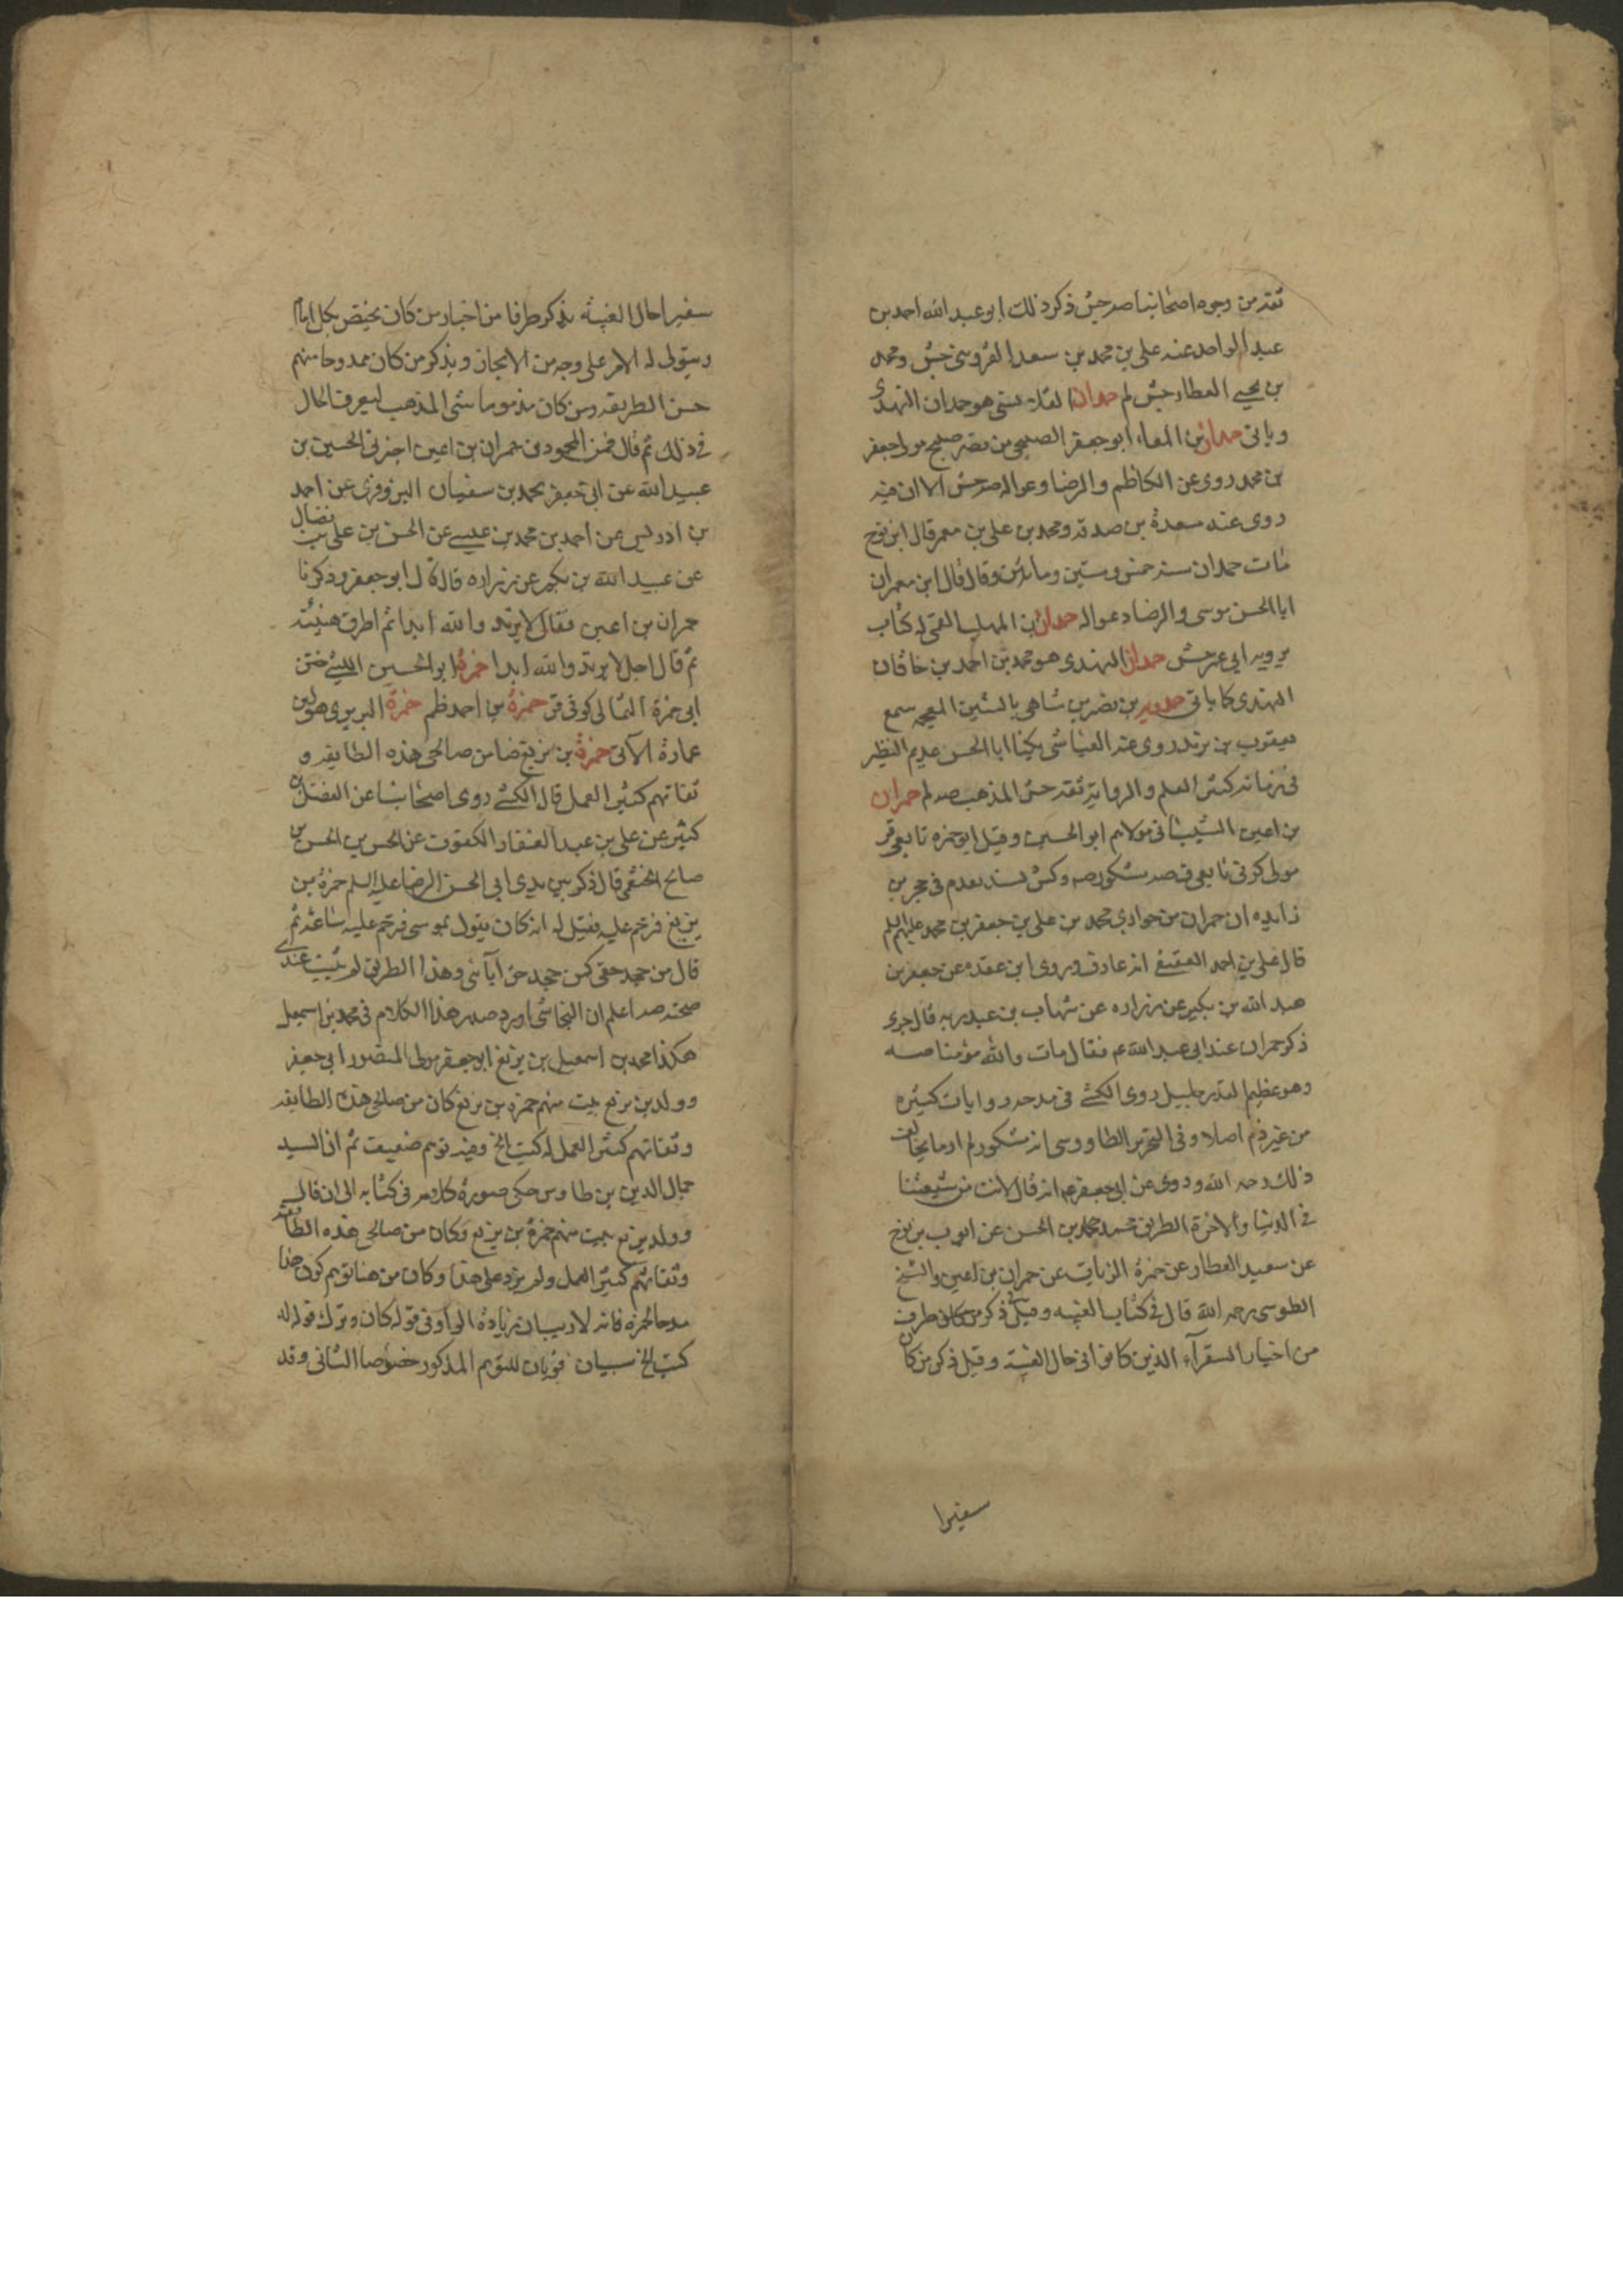 ثقة من وجوه اصحابنا صه جش ذكر ذلك ابو عبد الله احمد بن
عبد الواحد عنه علي بن محمد بن سعد القزويني جش ومحمد
بن يحيى العطار جش لم حمدان القلانسي هو حمدان النهدي
وياتي حمدان بن المعافا ابو جعفر الصبيحي من قصر صبيح مولى جعفر
بن محمد روى عن الكاظم والرضا وعوا له صه جش الا ان فيه
روى عنه مسعدة بن صدقه ومحمد بن علي بن معمر قال ابن نوح
مات حمدان سنة خمس وستين ومائتين وقال قال ابن معمر ان
ابا الحسن موسى والرضا دعوا له حمدان بن المهلب القمي له كتاب
يرويه ابي عنه جش حمدان النهدي هو محمد بن احمد بن خاقان
النهدي كما ياتي حمدويه بن نصر بن شاهي بالشين المعجمه سمع
يعقوب بن يزيد روى عنه العياشي يكنا ابا الحسن عديم النظير
في زمانه كثير العلم والرواية ثقة حسن المذهب صه لم حمران
بن اعين الشيباني مولاهم ابو الحسين وقيل ابو حمزه تابعي قر
مولى كوفي تابعي ق صه مشكور صه وكش بسند تقدم في حجر بن
زايده ان حمران من حواري محمد بن علي بن جعفر بن محمد عليهم السلم
قال علي بن احمد العقيقي انه عارف وروى ابن عقده عن جعفر بن
عبد الله بن بكير عن زراره عن شهاب بن عبد ربه قال جرى
ذكر حمران عند ابي عبد الله ع فقال مات والله مؤمنا صه
وهو عظيم القدر جليل روى الكشي في مدحه روايات كثيره
من غير ذم اصلا وفي التحرير الطاووسي انه مشكور لم ار ما يخالف
ذلك رحمه الله وروى عن ابي جعفر ع انه قال لانت من شيعتنا
في الدنيا والاخرة الطريق محمد بن الحسن عن ايوب بن نوح
عن سعيد العطار عن حمزة الزيات عن حمران بن اعين والشيخ
الطوسي رحمه الله قال في كتاب الغيبه وقبل ذكر من كان طرف
من اخبار السفرآء الذين كانوا في حال الغيبة وقبل ذكر من كان
سفيرا
سفيرا حال الغيبة نذكر طرفا من اخبار من كان يختص بكل امام
ويتولى له الامر على وجه من الايجاز ونذكر من كان ممدوحا منهم
حسن الطريقه ومن كان مذموما سئ المذهب ليعرف الحال
في ذلك ثم قال فمن المحمودين حمران بن اعين اخبرني الحسين بن
عبيد الله عن ابي جعفر محمد بن سفيان البزوفري عن احمد
بن ادريس عن احمد بن محمد بن عيسى عن الحسن بن علي بن فضال
عن عبيد الله بن بكير عن زراره قال قال ابو جعفر وذكرنا
حمران بن اعين فقال لا يرتد والله ابدا ثم اطرق هنيئة
ثم قال اجل لا يرتد والله ابدا حمزة ابو الحسين الليثي ختن
ابي حمزة الثمالي كوفي ق حمزة بن احمد ظم حمزة البربري هو بن
عمارة الآتي حمزة بن بزيع ضا من صالحي هذه الطايفه و
ثقاتهم كثير العمل قال الكشي روى اصحابنا عن الفضل بن
كثير عن علي بن عبد الغفار المكفوف عن الحسن بن الحسن بن
صالح الخثعمي قال ذكر بين يدي ابي الحسن الرضا عليه السلم حمزة بن
بزيع فرحم عليه فقيل له انه كان يقول بموسى فرحم عليه ساعة ثم
قال من جحد حقي كمن جحد حق آبائي وهذا الطريق لم يثبت عندي
صحته صه اعلم ان النجاشي اورد صدر هذا الكلام في محمد بن اسمعيل
هكذا محمد بن اسمعيل بن بزيع ابو جعفر مولى المنصور ابي جعفر
وولد بن بزيع بيت منهم حمزة بن بزيع كان من صالحي هذه الطايفه
وثقاتهم كثير العمل له كتب الخ وفيه توهم ضعيف ثم ان السيد
جمال الدين بن طاوس حكى صورة كلامه في كتابه الى ان قال
وولد بزيع بيت منهم حمزة بن بزيع وكان من صالحي هذه الطائفة
وثقاتهم كثير العمل ولم يزد على هذا وكان من هنا توهم كون هذا
مدحا لحمزه فانه لا ريب ان زيادة الواو في قوله كان وترك قوله له
كتب الخ سببان قويان للتوهم المذكور خصوصا الثاني وقد